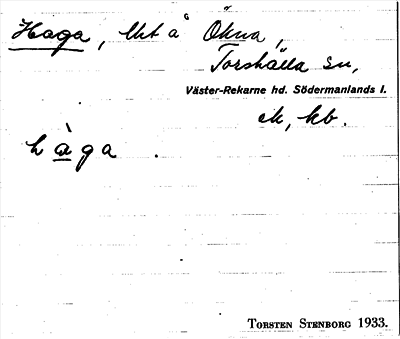 Haga, lht å Ökna,
Torshälla sn,
Väster-Rekarne hd. Södermanlands l.
ek, kb.
hàga .
TORSTEN STENBORG 1933.